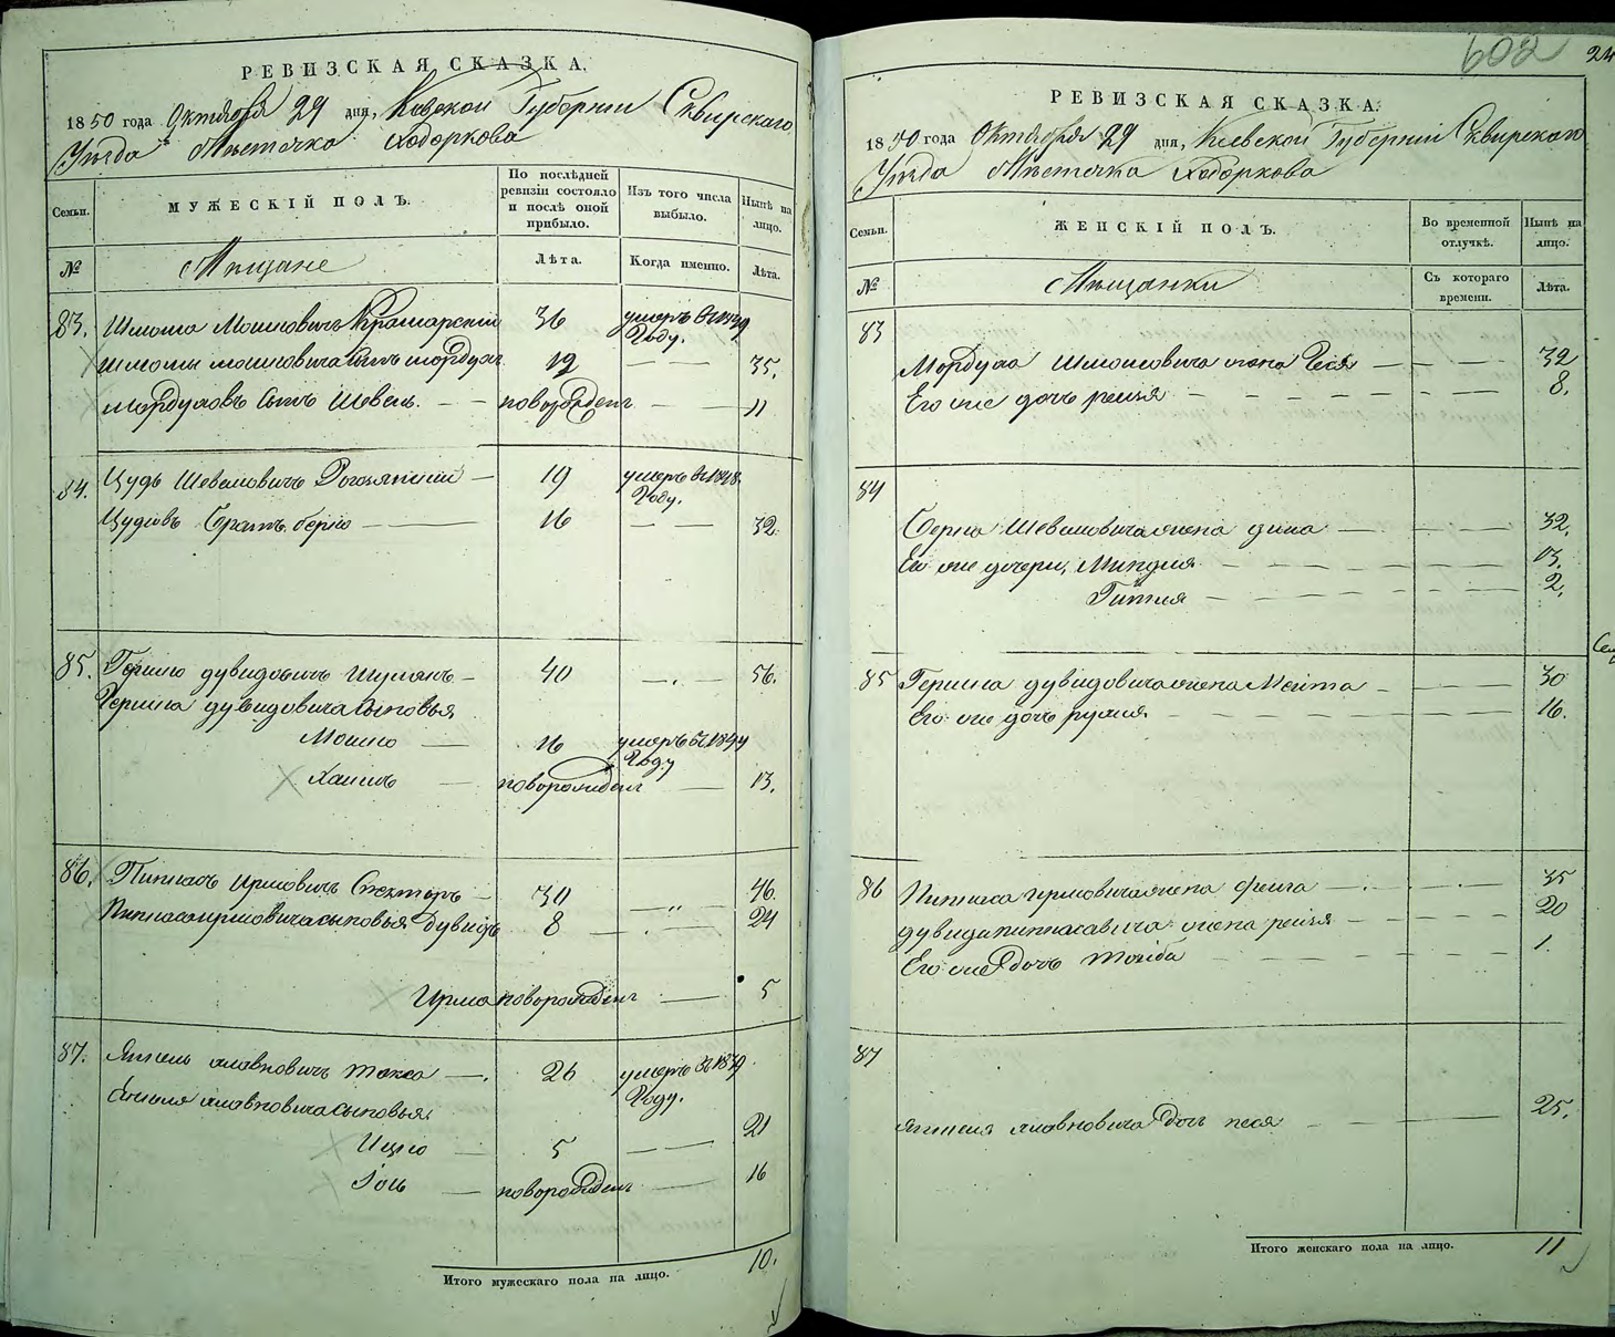 РЕВИЗСКАЯ СКАЗКА.
1850 года Октября 29 дня, Киевской Губернии Сквирскаго
Уѣзда Мѣстечка Ходоркова
Семьи.
МУЖЕСКІЙ ПОЛЪ.
По послѣдней ревизіи состояло и послѣ оной прибыло.
Изъ того числа выбыло.
Нынѣ на лицо.
№
Мѣщане
Лѣта.
Когда именно.
Лѣта.
83. Шмома Мошковичъ 36 умеръ въ 1839
Году.
Шмомы Мошковича сынъ Мордухъ 19 — — 35.
Мордуховъ Сынъ Шевель. — — новорожденъ — — 11
84. Цудь Шевелевичъ — 19 умеръ въ 1848
Году.
Цудовъ Братъ берко — — 16 — — 32
85. Гершко дувидовичъ Шулякъ — 40 — . — 56.
Гершка дувидовича Сыновья
Мошко — 16 умеръ въ 1844
Году
Хаимъ — новорожденъ — 13.
86. Пинхасъ Ирмовичъ Спекторъ — 30 46.
Пинхаса Ирмовича сыновья Дувидъ 8 — . — 24
Ирма новорожденъ — 5
87. Янкель — . 26 умеръ въ 1839
Году.
Янкеля сыновья.
21
Ицко — 5 — —
Іось — новорожденъ — 16
Итого мужескаго пола на лицо. 10.
602
24
РЕВИЗСКАЯ СКАЗКА.
1850 года Октября 29 дня, Киевской Губерніи Сквирскаго
Уѣзда Мѣстечка Ходоркова
Семьи.
ЖЕНСКІЙ ПОЛЪ.
Во временной отлучкѣ.
Нынѣ на лицо.
№
Мѣщанки
Съ котораго времени.
Лѣта.
83
Мордуха Шмомовича жена Геся — — — 32
Его же дочь рейзя — — — 8.
84
Берка Шевелевича жена дина — — — 32.
Его же дочери, Миндля — — — 13.
Гитля — — — 2.
85 Гершка дувидовича жена Мейта — — — 30
Его же дочь рухля — — — 16.
86 Пинхаса Ирмовича жена фейга — . — . — 35
дувида пинхасовича жена рейзя — — — 20
Его же дочь тойба — — — 1.
87
Янкеля дочь песя — — — 25.
Итого женскаго пола на лицо. 11